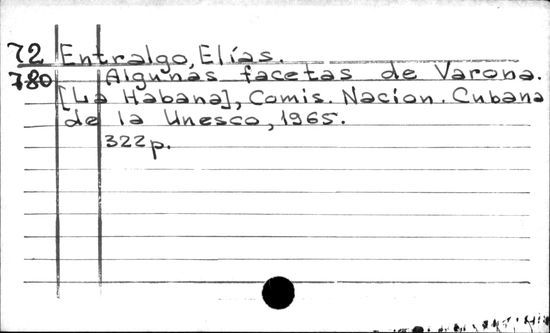 72 Entralgo, Elías.
780 Algunas facetas de Varona.
[La Habana], Comis. Nacion. Cubana
de la Unesco, 1965.
322 p.